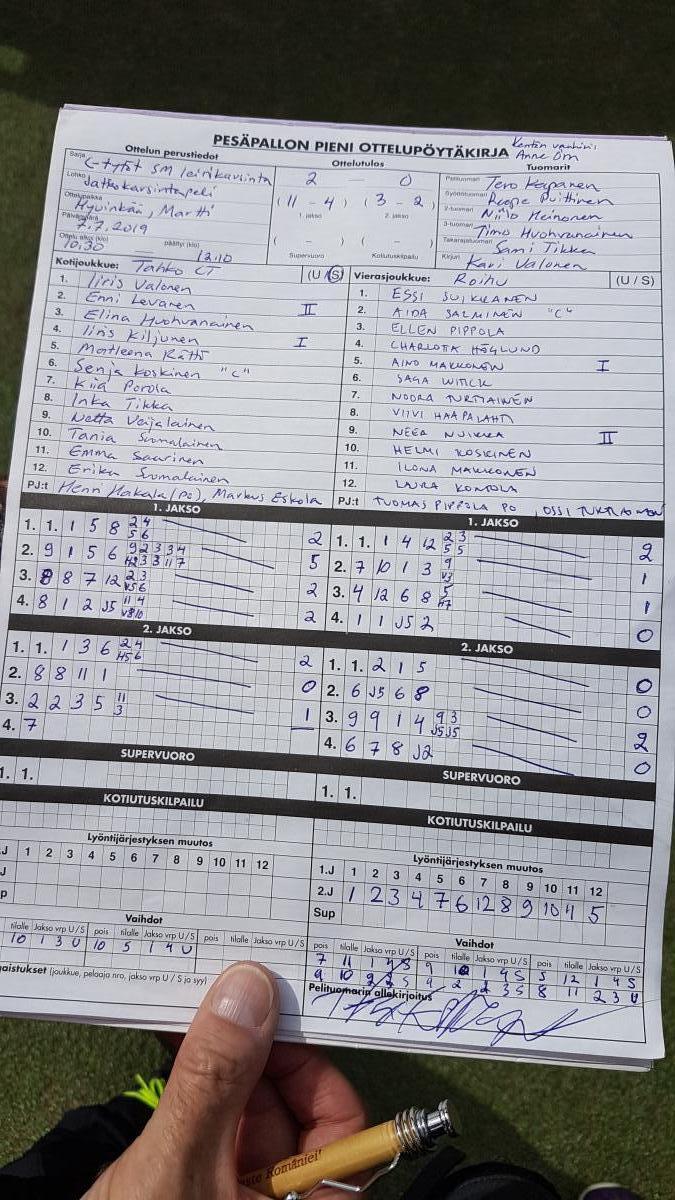 PESÄPALLON PIENI OTTELUPÖYTÄKIRJA
Kentän vanhin: Anne Öm
Ottelun perustiedot
Sarja C-tytöt SM leirikarsinta
Lohko Jatkokarsintapeli
Ottelupaikka Hyvinkää, Martti
Päivämäärä 7.7.2019
Ottelu alkoi (klo) 10.30 päättyi (klo) 12.10
Ottelutulos
2 – 0
(11 – 4) (3 – 2)
1. jakso 2. jakso
( – ) ( – )
Supervuoro Kotiutuskilpailu
Tuomarit
Pelituomari Tero Kapanen
Syöttötuomari Roope Puittinen
2-tuomari Niilo Heinonen
3-tuomari Timo Huohvanainen
Takarajatuomari Sami Tikka
Kirjuri Kari Valonen
Kotijoukkue: Tahko CT (U / S)
1. Iiris Valonen
2. Enni Levänen
3. Elina Huohvanainen II
4. Iiris Kiljunen I
5. Matleena Rätti
6. Senja Koskinen "C"
7. Kiia Porola
8. Inka Tikka
9. Netta Veijalainen
10. Tania Suomalainen
11. Emma Saarinen
12. Erika Suomalainen
PJ:t Henri Hakala (po), Markus Eskola
Vierasjoukkue: Roihu (U / S)
1. ESSI SUIKKANEN
2. AIDA SALMINEN "C"
3. ELLEN PIPPOLA
4. CHARLOTA HÖGLUND
5. AINO MAKKONEN I
6. SAGA WITICK
7. NOORA TURTIAINEN
8. VIIVI HAAPALAHTI
9. NEEA NUIKKA II
10. HELMI KOSKINEN
11. ILONA MAKKONEN
12. LAURA KONTOLA
PJ:t TUOMAS PIPPOLA PO, OSSI TURTIAINEN
1. JAKSO
1. 1. 1 5 8 2 4 2
5 6
2. 9 1 5 6 9 2 3 3 4 5
3. 8 8 7 12 2 3 2
V5 6
4. 8 1 2 J5 11 4 2
V8 10
1. JAKSO
1. 1. 1 4 12 2 3 2
5 5
2. 7 10 1 3 9 1
V3
3. 4 12 6 8 5 1
H7
4. 1 1 J5 2 0
2. JAKSO
1. 1. 1 3 6 2 4 2
H5 6
2. 8 8 11 1 0
3. 2 2 3 5 11 1
3
4. 7
2. JAKSO
1. 1. 2 1 5 0
2. 6 J5 6 8 0
3. 9 9 1 4 9 3 2
J5 J5
4. 6 7 8 J2 0
SUPERVUORO
1. 1.
SUPERVUORO
1. 1.
KOTIUTUSKILPAILU
KOTIUTUSKILPAILU
Lyöntijärjestyksen muutos
.J 1 2 3 4 5 6 7 8 9 10 11 12
J
p
Lyöntijärjestyksen muutos
1.J 1 2 3 4 5 6 7 8 9 10 11 12
2.J 1 2 3 4 7 6 12 8 9 10 11 5
Sup
Vaihdot
tilalle Jakso vrp U / S pois tilalle Jakso vrp U / S pois tilalle Jakso vrp U / S
10 1 3 U 10 5 1 4 U
gaistukset (joukkue, pelaaja nro, jakso vrp U / S ja syy)
Vaihdot
pois tilalle Jakso vrp U / S pois tilalle Jakso vrp U / S pois tilalle Jakso vrp U / S
5 12 1 4 S
9 2 2 3 S 8 11 2 3 U
Pelituomarin allekirjoitus
României!